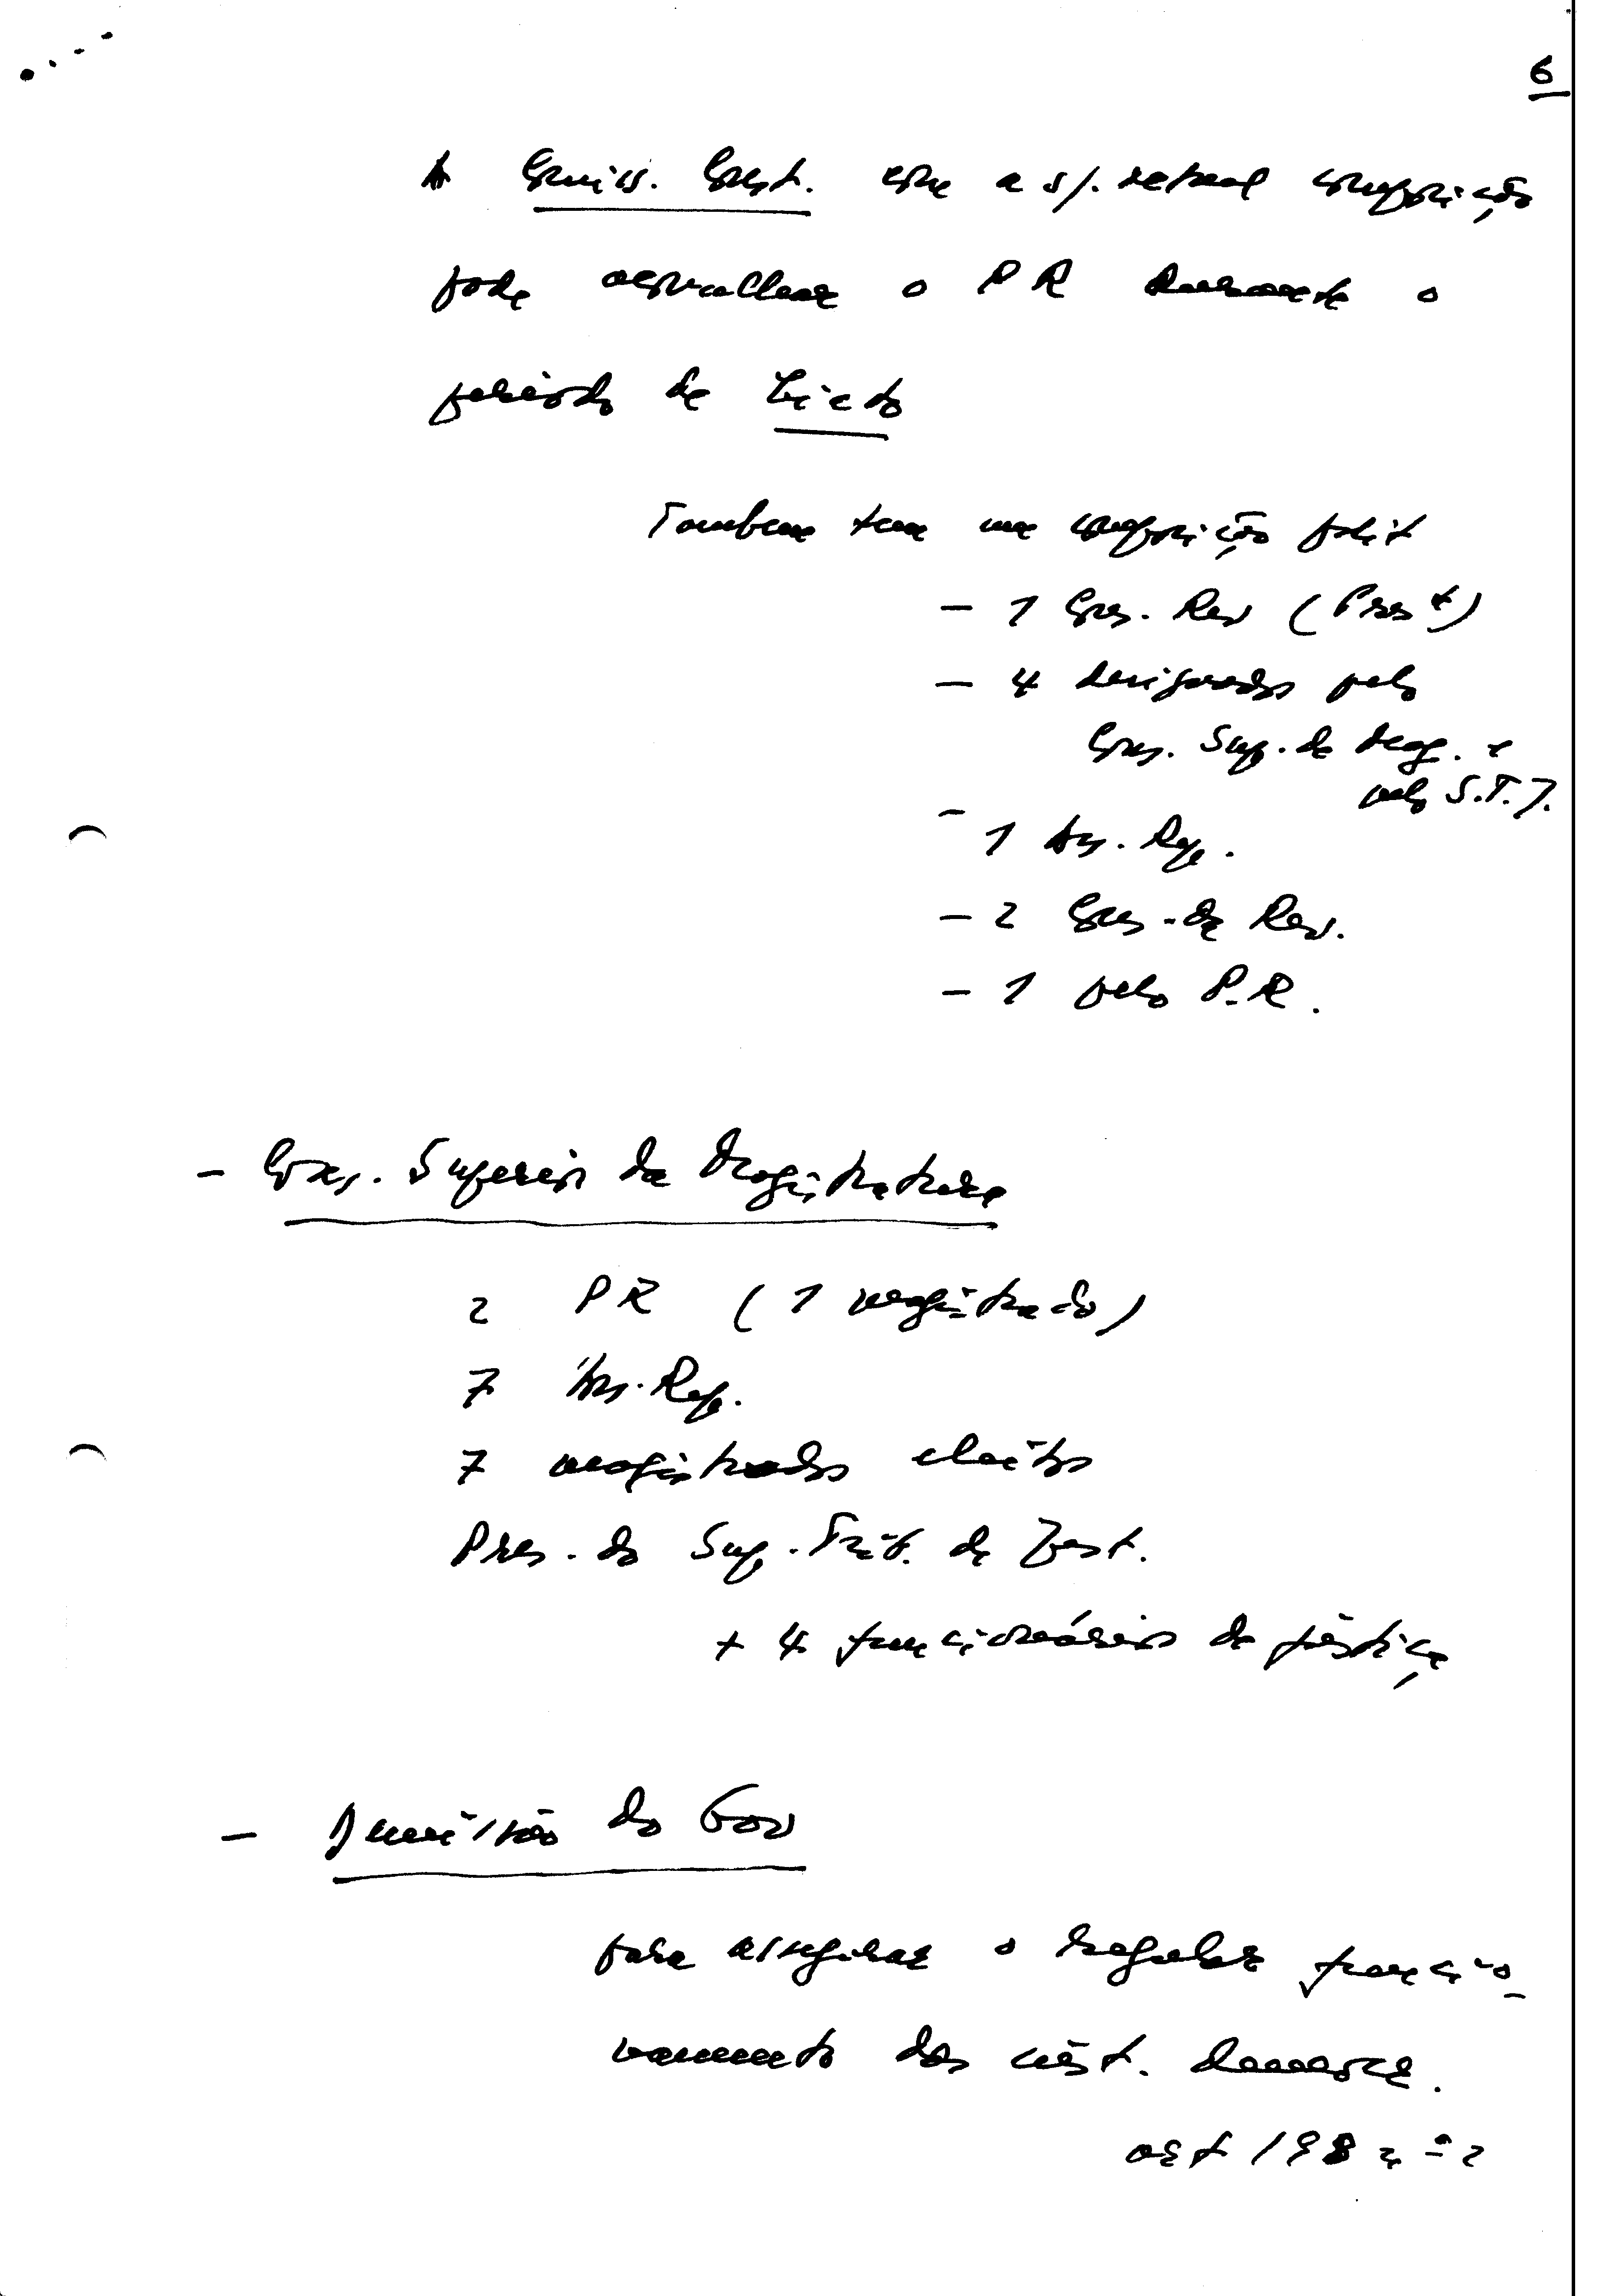 6
A Comiss. Const. com a s/. actual composição
pode aconselhar o PR durante o
período de
Tambem tem uma composição polit
- 1 Cons. Rev (Prest)
- 4 designados pelo
Cons. Sup. da Mag. e
pelo S.T.J.
- 1 As. Rep.
- 2 Cons. de Rev.
- 1 pelo P.R.
- Cons. Superior da Magistratura
2 PR (1 magistrado)
7 As. Rep.
7 magistrados eleitos
Pres. do Sup. Trib. de Just.
+ 4 funcionários de justiça
- Demissão do Gov
para assegurar o regular funcio_
namento das inst. democr.
art 198 nº 2